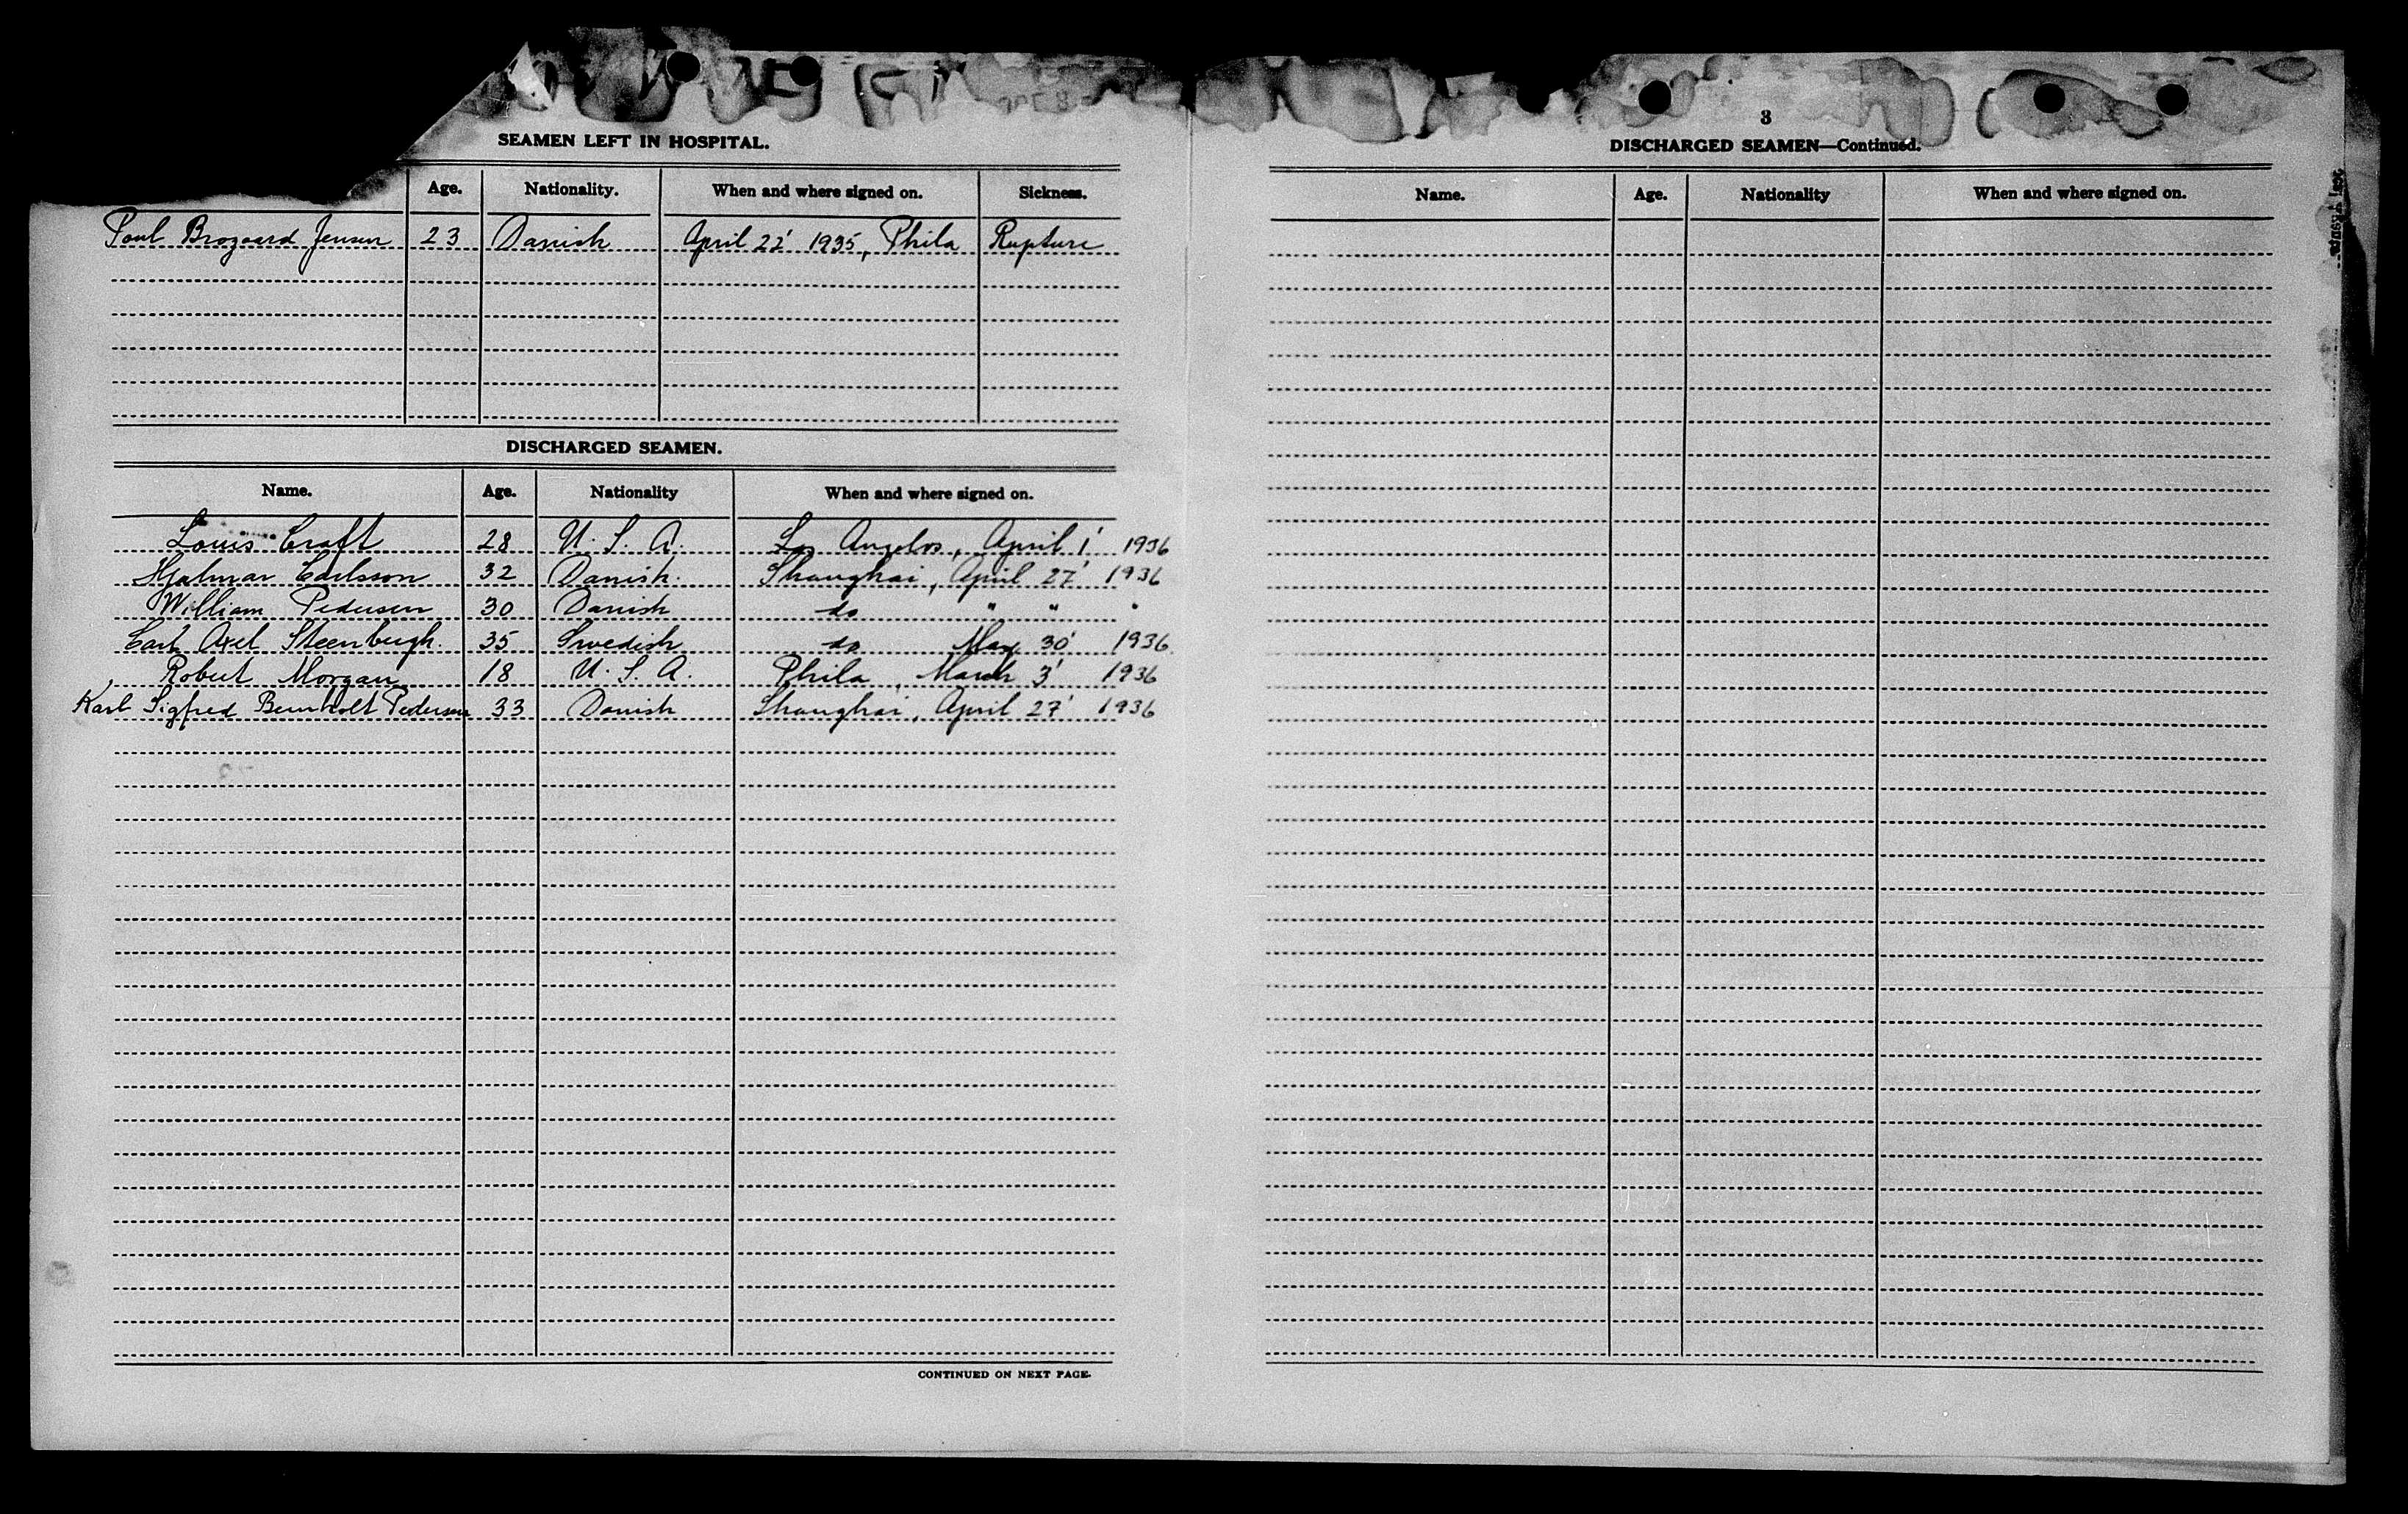 SEAMEN LEFT IN HOSPITAL.
Age. Nationality. When and where signed on. Sickness.
Poul Brogaard Jensen 23 Danish April 22' 1935, Phila Rupture
DISCHARGED SEAMEN.
Name. Age. Nationality When and where signed on.
Louis Craft 28 U. S. A. Los Angelos, April 1' 1936
Hjalmar Carlsson 32 Danish. Shanghai, April 27' 1936
William Pedersen 30 Danish do " " "
Carl Axel Steenbugh. 35 Swedish do May 30' 1936.
Robert Morgan 18 U. S. A. Phila, March 3' 1936
Karl Sigfred Bernholt Pedersen 33 Danish Shanghai, April 27' 1936
CONTINUED ON NEXT PAGE.
3
DISCHARGED SEAMEN—Continued.
Name. Age. Nationality When and where signed on.